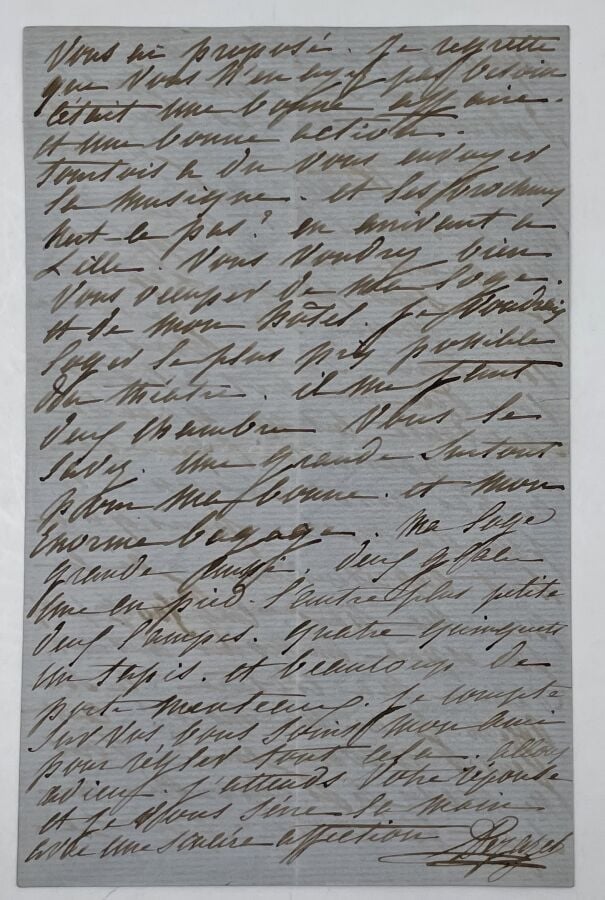 vous ai proposé. je regrette
que vous n'en ayez pas besoin
c'était une bonne affaire.
et une bonne action.
a du vous envoyer
la musique. et les brochures
n'est-ce pas? en arrivant a
Lille. vous voudrez bien
vous occuper de ma loge.
et de mon hôtel. je voudrais
loger le plus près possible
du théatre. il me faut
deux chambre vous le
savez. une grande surtout
pour ma bonne. et mon
énorme bagage. ma loge
grande aussi. deux glace
une en pied. l'autre plus petite
deux lampes. quatre quinquets
un tapis. et beaucoup de
porte manteaux. je compte
sur vos bons soins mon ami
pour régler tout cela. allons
adieux. j'attends votre réponse
et je vous serre la main
avec une sincère affection
Déjazet